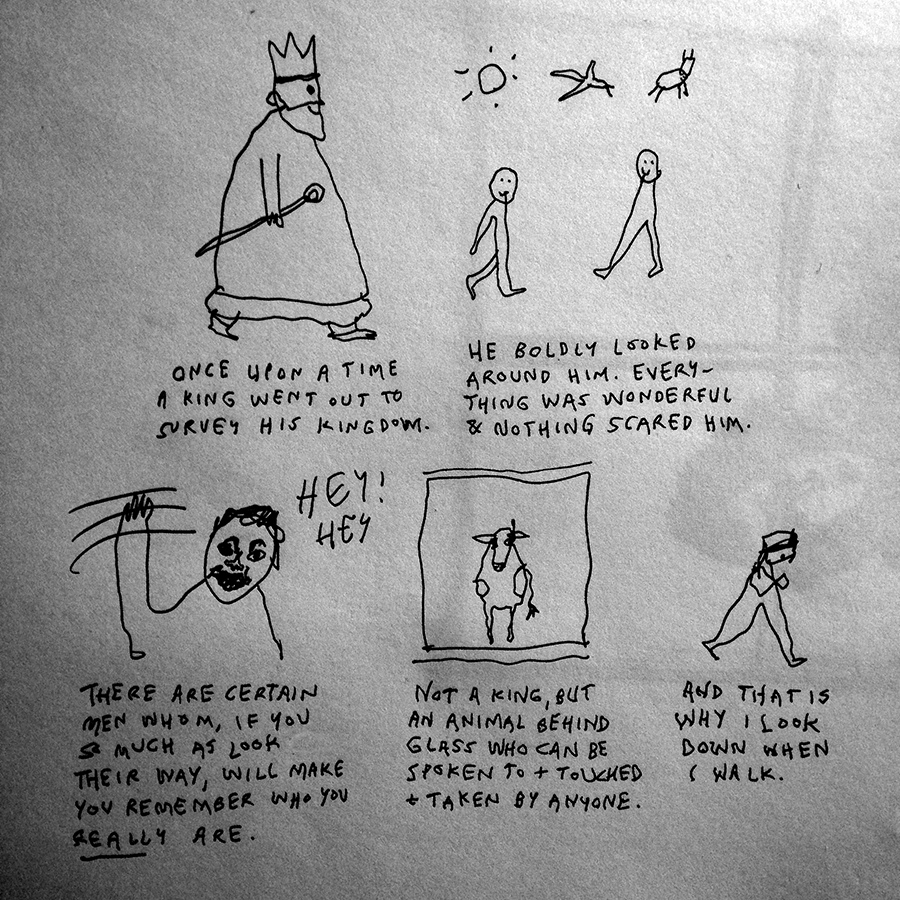 ONCE UPON A TIME
A KING WENT OUT TO
SURVEY HIS KINGDOM.
HE BOLDLY LOOKED
AROUND HIM. EVERY-
THING WAS WONDERFUL
& NOTHING SCARED HIM.
HEY!
HEY
THERE ARE CERTAIN
MEN WHOM, IF YOU
SO MUCH AS LOOK
THEIR WAY, WILL MAKE
YOU REMEMBER WHO YOU
REALLY ARE.
NOT A KING, BUT
AN ANIMAL BEHIND
GLASS WHO CAN BE
SPOKEN TO + TOUCHED
+ TAKEN BY ANYONE.
AND THAT IS
WHY I LOOK
DOWN WHEN
I WALK.